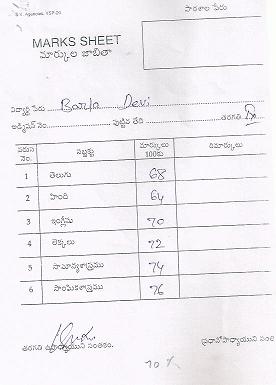 S.V. Agencies, YSP-20.
పాఠశాల పేరు
MARKS SHEET
మార్కుల జాబితా
విద్యార్థి పేరు Devi
అడ్మిషన్ నెం. పుట్టిన తేది తరగతి
వరుస నెం. సబ్జక్టు మార్కులు 100కు రిమార్కులు
1 తెలుగు 68
2 హింది 64
3 ఇంగ్లీషు 70
4 లెక్కలు 72
5 సామాన్యశాస్త్రము 74
6 సాంఘికశాస్త్రము 76
తరగతి ఉపాధ్యాయుని సంతకం. ప్రధానోపాధ్యాయుని సంత
70 %